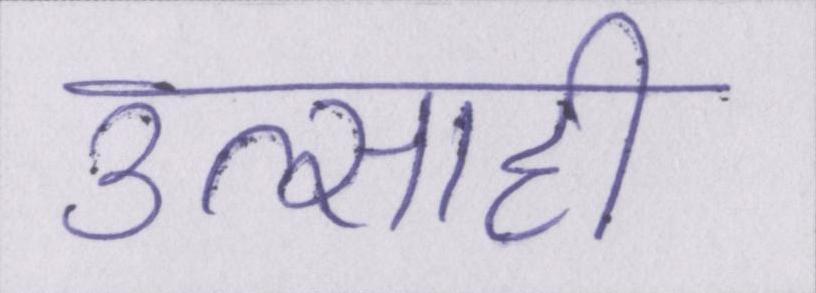 उत्साही